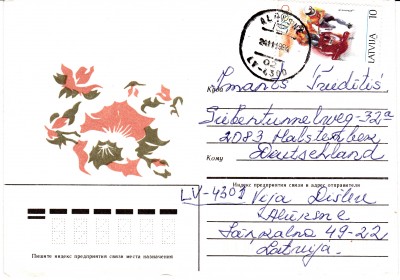 ALŪKSNE
LV-4300
LATVIJA 10
Куда Imants Trieditis
Siebentunnelweg-32a
2083 Halstenbek
Кому Deutschland
Индекс предприятия связи и адрес отправителя
LV-4301 Vija Dislere
Alūksne
49-22,
Latvija.
Пишите индекс предприятия связи места назначения